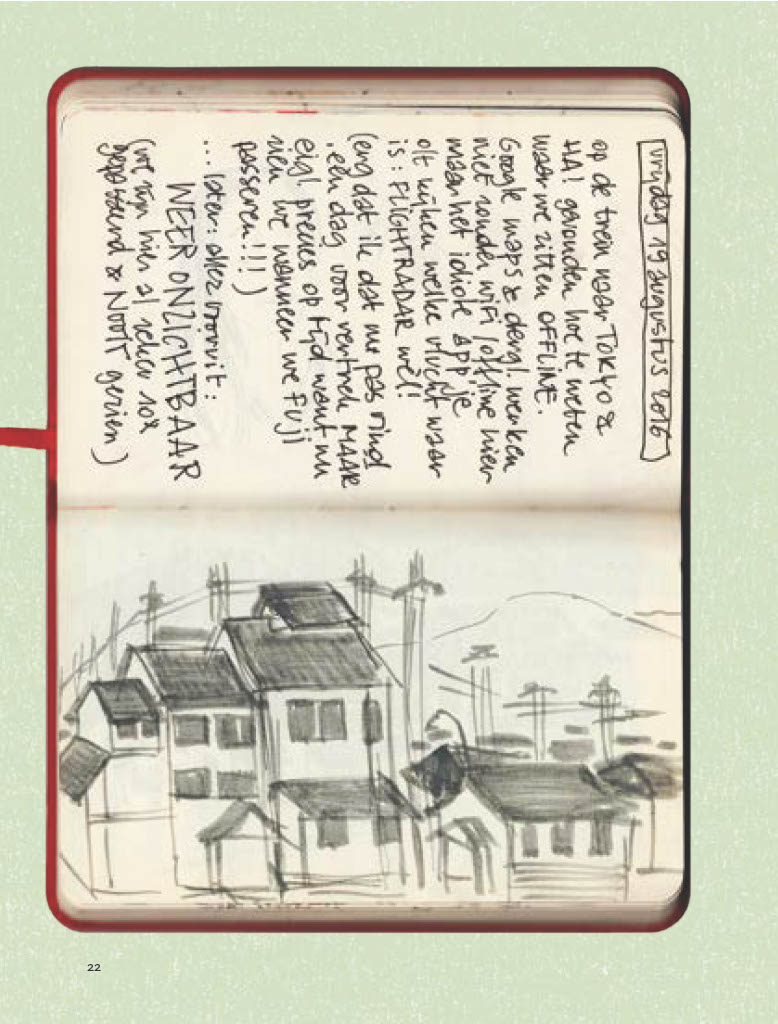 vrijdag 19 augustus 2016
op de trein naar TOKYO &
HA! gevonden hoe te weten
waar we zitten OFFLINE.
Google maps & dergl. werken
niet zonder wifi / offline hier
maar het idiote APP je
om kijken welke vlucht waar
is: FLIGHTRADAR wèl!
(erg dat ik dat nu pas vind
één dag voor vertrek MAAR
eigl. precies op tijd want nu
zien we wanneer we FUJI
passeren!!!)
... later: allez vooruit:
WEER ONZICHTBAAR
(we zijn hier al zeker 10x
gepasseerd & NOOIT gezien)
22